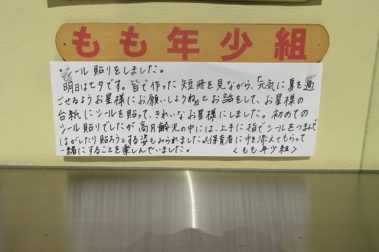 もも年少組
シール貼りをしました。
明日は七夕です。皆で作った短冊を見ながら、「元気に夏を過
ごせるようお星様にお願いしようね」とお話をして、お星様の
台紙にシールを貼って、きれいなお星様にしました。初めての
シール貼りでしたが高月齢児の中には、上手に指でシールをつまんで
はがしたり貼ろうとする姿もみられました。保育者に手を添えてもらって
一緒にすることを楽しんでいました。 <もも年少組>